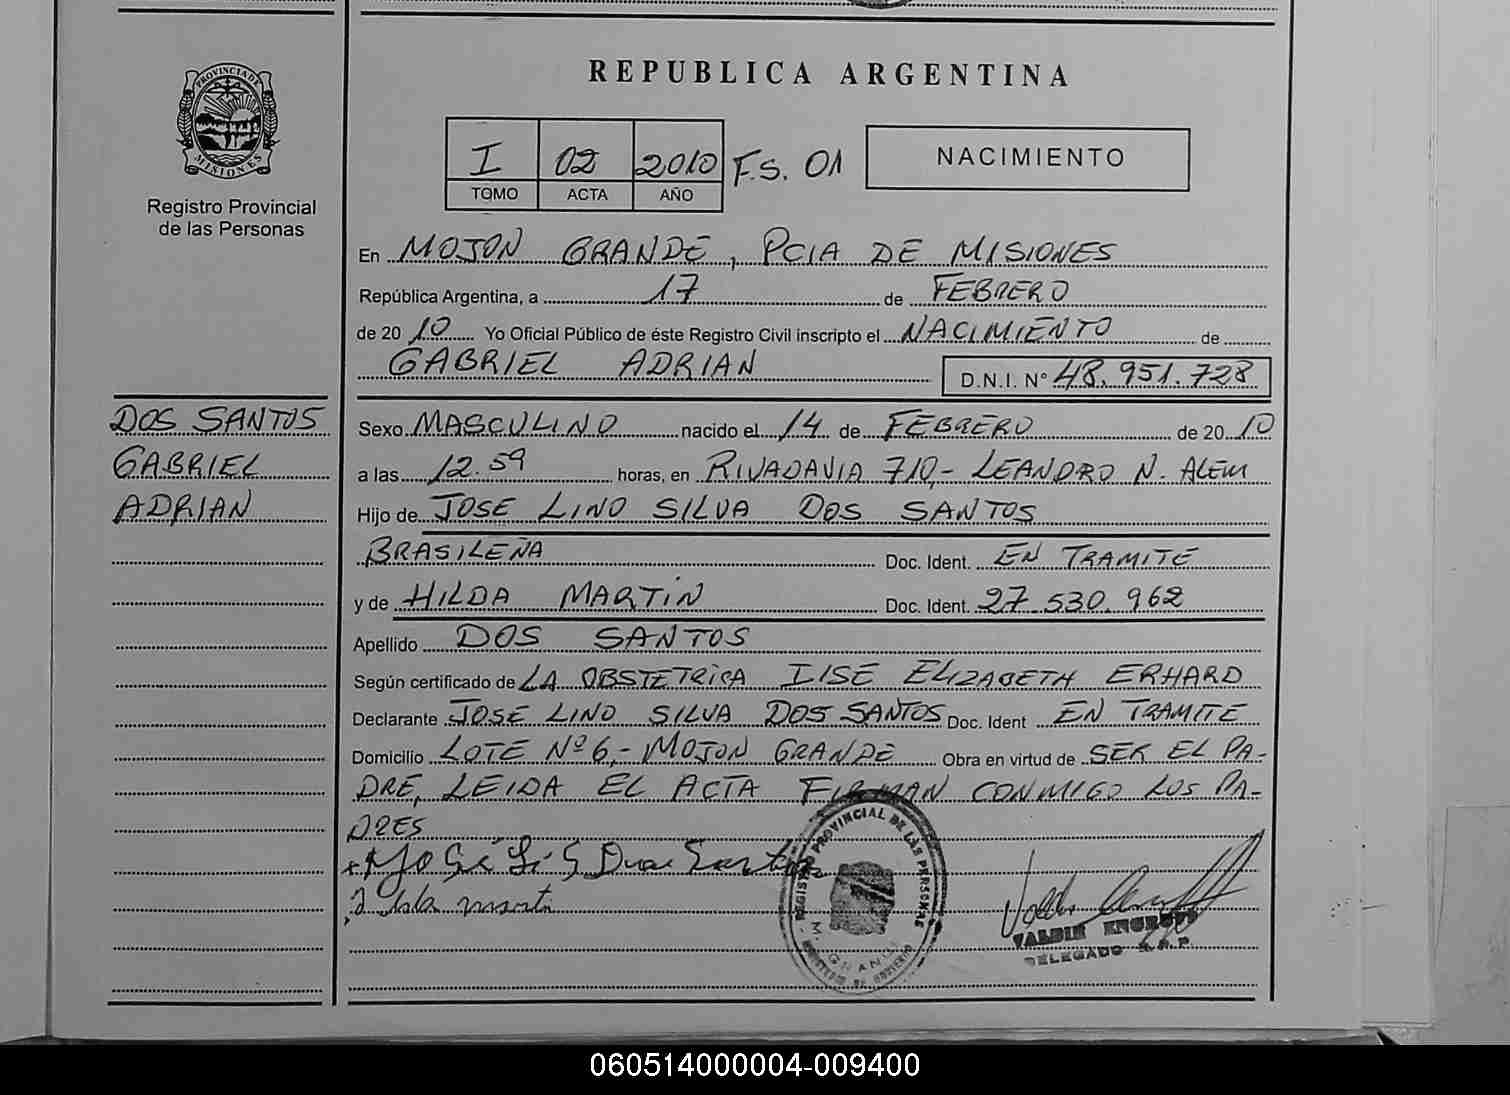 REPUBLICA ARGENTINA
PROVINCIA DE
MISIONES
Registro Provincial
de las Personas
I 02 2010 F.S. 01
TOMO ACTA AÑO
NACIMIENTO
En MOJON GRANDE, PCIA DE MISIONES
República Argentina, a 17 de FEBRERO
de 20 10 Yo Oficial Público de éste Registro Civil inscripto el NACIMIENTO de
GABRIEL ADRIAN D.N.I. Nº 48.951.728
DOS SANTOS
GABRIEL
ADRIAN
Sexo MASCULINO nacido el 14 de FEBRERO de 20 10
a las 12.59 horas, en RIVADAVIA 710,- LEANDRO N. ALEM
Hijo de JOSE LINO SILVA DOS SANTOS
BRASILEÑA Doc. Ident. EN TRAMITE
y de HILDA MARTIN Doc. Ident. 27.530.962
Apellido DOS SANTOS
Según certificado de LA OBSTETRICA ILSE ELIZABETH ERHARD
Declarante JOSE LINO SILVA DOS SANTOS Doc. Ident EN TRAMITE
Domicilio LOTE Nº 6,- MOJON GRANDE Obra en virtud de SER EL PA-
DRE, LEIDA EL ACTA FIRMAN CONMIGO LOS PA-
DRES
REGISTRO PROVINCIAL DE LAS PERSONAS
M. GRANDE
MINISTERIO DE GOBIERNO
VALDIR
DELEGADO R.P.P.
060514000004-009400